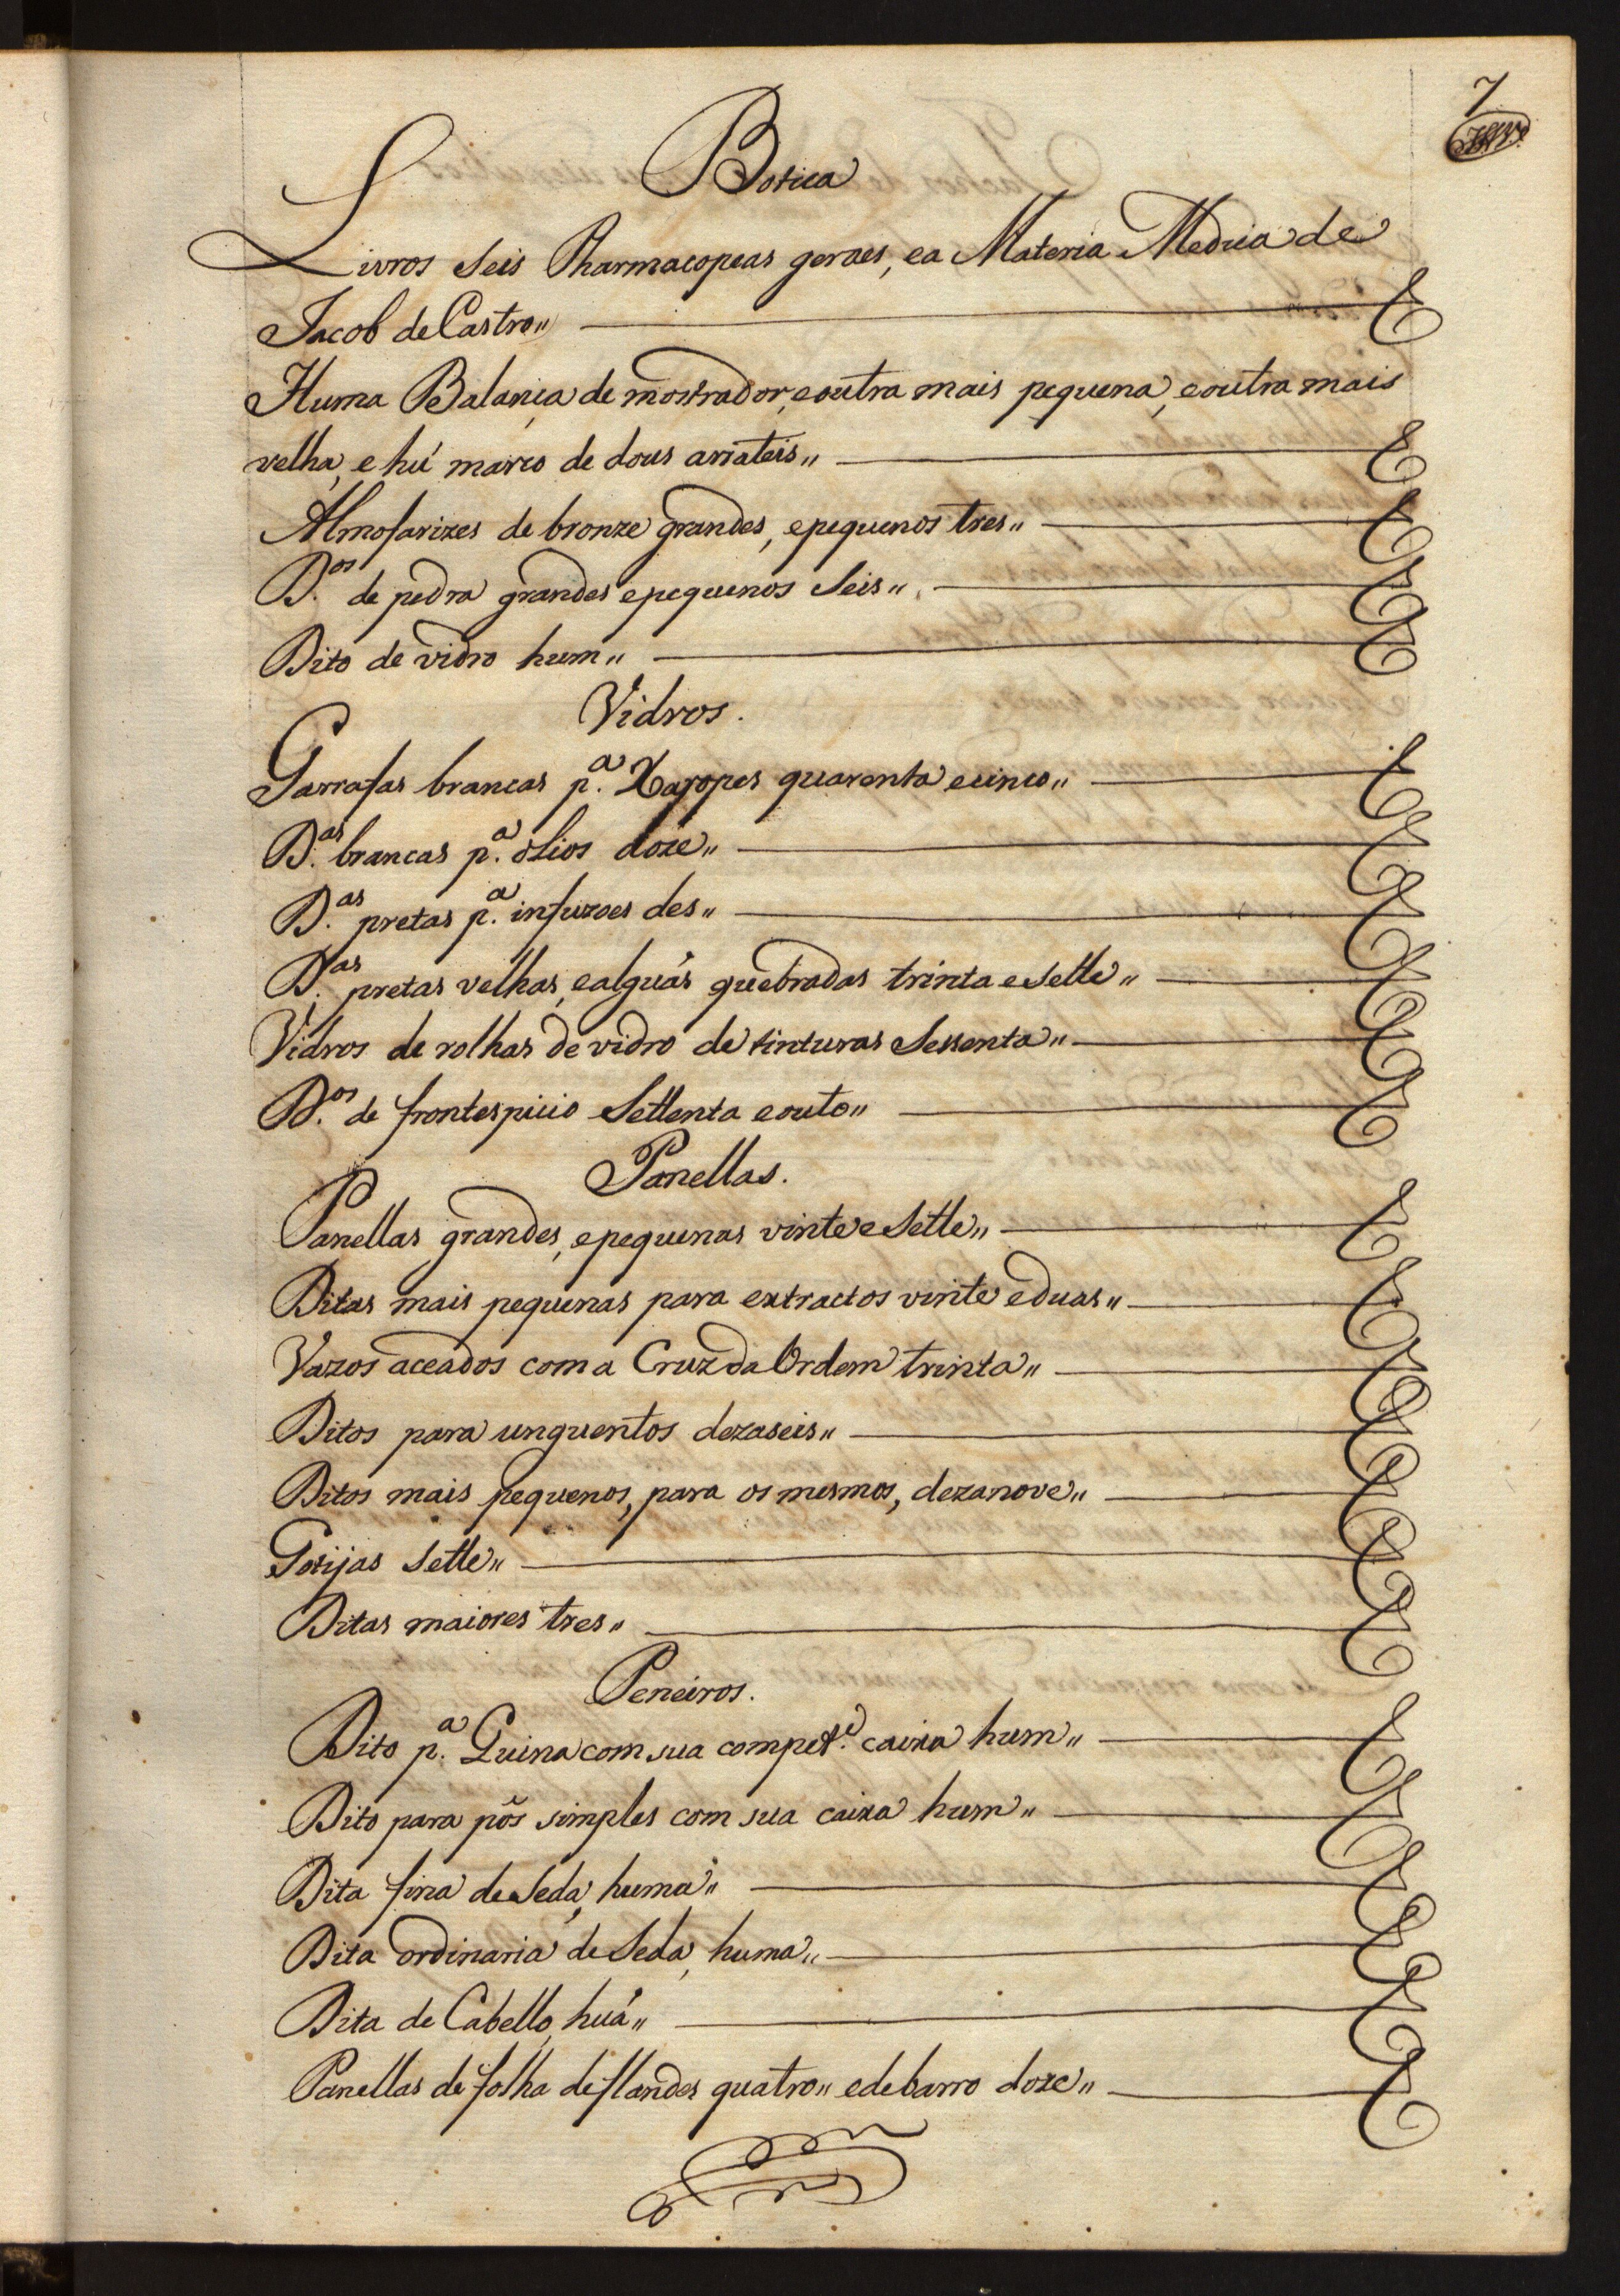 7
Botica
Livros Seis Pharmacopeas geraes, ea Materia Medica de
Jacob de Castro,,
Huma Balança de mostrador, eoutra mais pequena, eoutra mais
velha, e hú marco de dous arrateis,,
Almofarizes de bronze grandes, epequenos tres,,
D.os de pedra grandes epequenos Seis,,
Dito de vidro hum,,
Vidros.
Garrafas brancas p.a Xaropes quarenta ecinco,,
D.as brancas p.a olios doze,,
D.as pretas p.a infuzoes des,,
D.as pretas velhas, ealguás quebradas trinta e Sette,,
Vidros de rolhas de vidro de tinturas Sessenta,,
D.os de frontespicio Settenta eouto,,
Panellas.
Panellas grandes, epequenas vinte e Sette,,
Ditas mais pequenas para extractos vinte eduas,,
Vazos aceados com a Cruz da Ordem trinta,,
Ditos para unguentos dezaseis,,
Ditos mais pequenos, para os mesmos, dezanove,,
Botijas Sette,,
Ditas maiores tres,,
Peneiros.
Dito p.a Quina com sua compet.e caixa hum,,
Dito para pós simples com sua caixa hum,,
Dita fina de Seda, huma,,
Dita ordinaria de Seda, huma,,
Dita de Cabello, huá,,
Panellas de folha de flandes quatro,, edebarro doze,,